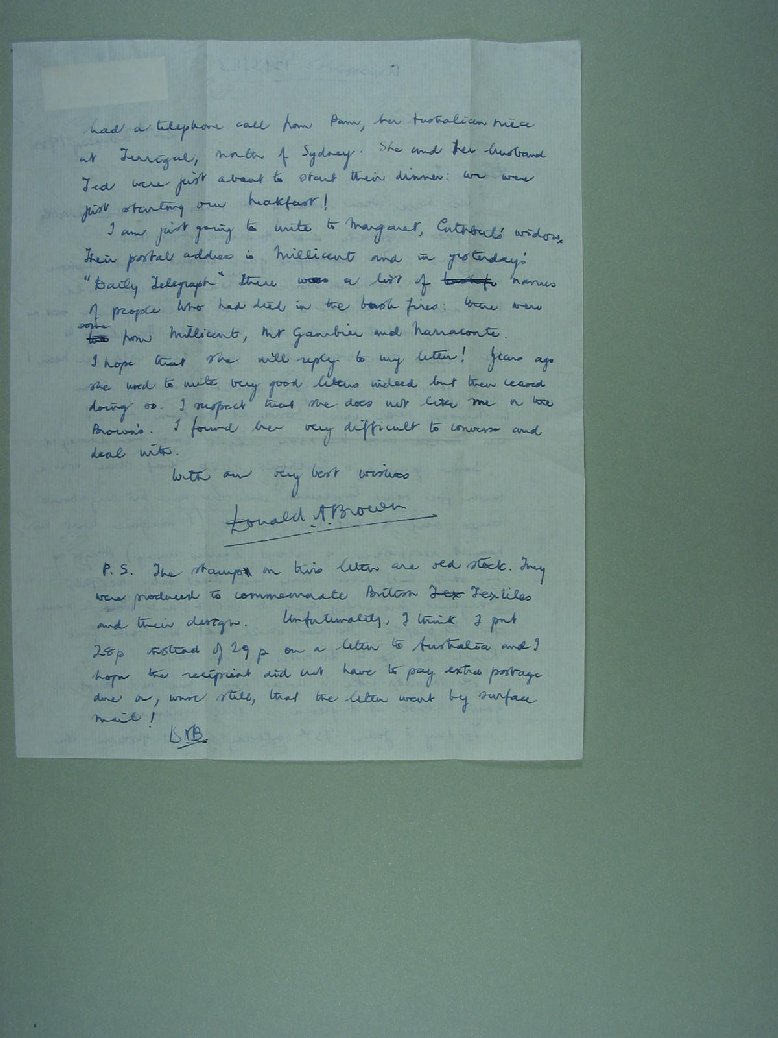 had a telephone call from Pam, her Australian niece
at Terrigal, north of Sydney. She and her husband
Ted were just about to start their dinner: we were
just starting our breakfast!
I am just going to write to Margaret, Cuthbert's widow,
Their postal address is Millicent and in yesterday's
"Daily Telegraph" there was a list of names
of people who had died in the bush fires: there were
some from Millicent, Mt Gambier and Narracorte.
I hope that she will reply to my letter! Years ago
she used to write very good letters indeed but then ceased
doing so. I suspect that she does not like me or the
Brown's. I found her very difficult to converse and
deal with.
With our very best wishes
Donald A. Brown
P.S. The stamps on this letter are old stock. They
were produced to commemorate British Tex Textiles
and their design. Unfortunately, I think I put
28p instead of 29p on a letter to Australia and I
hope the recipient did not have to pay extra postage
due or, worse still, that the letter went by surface
mail!
DAB